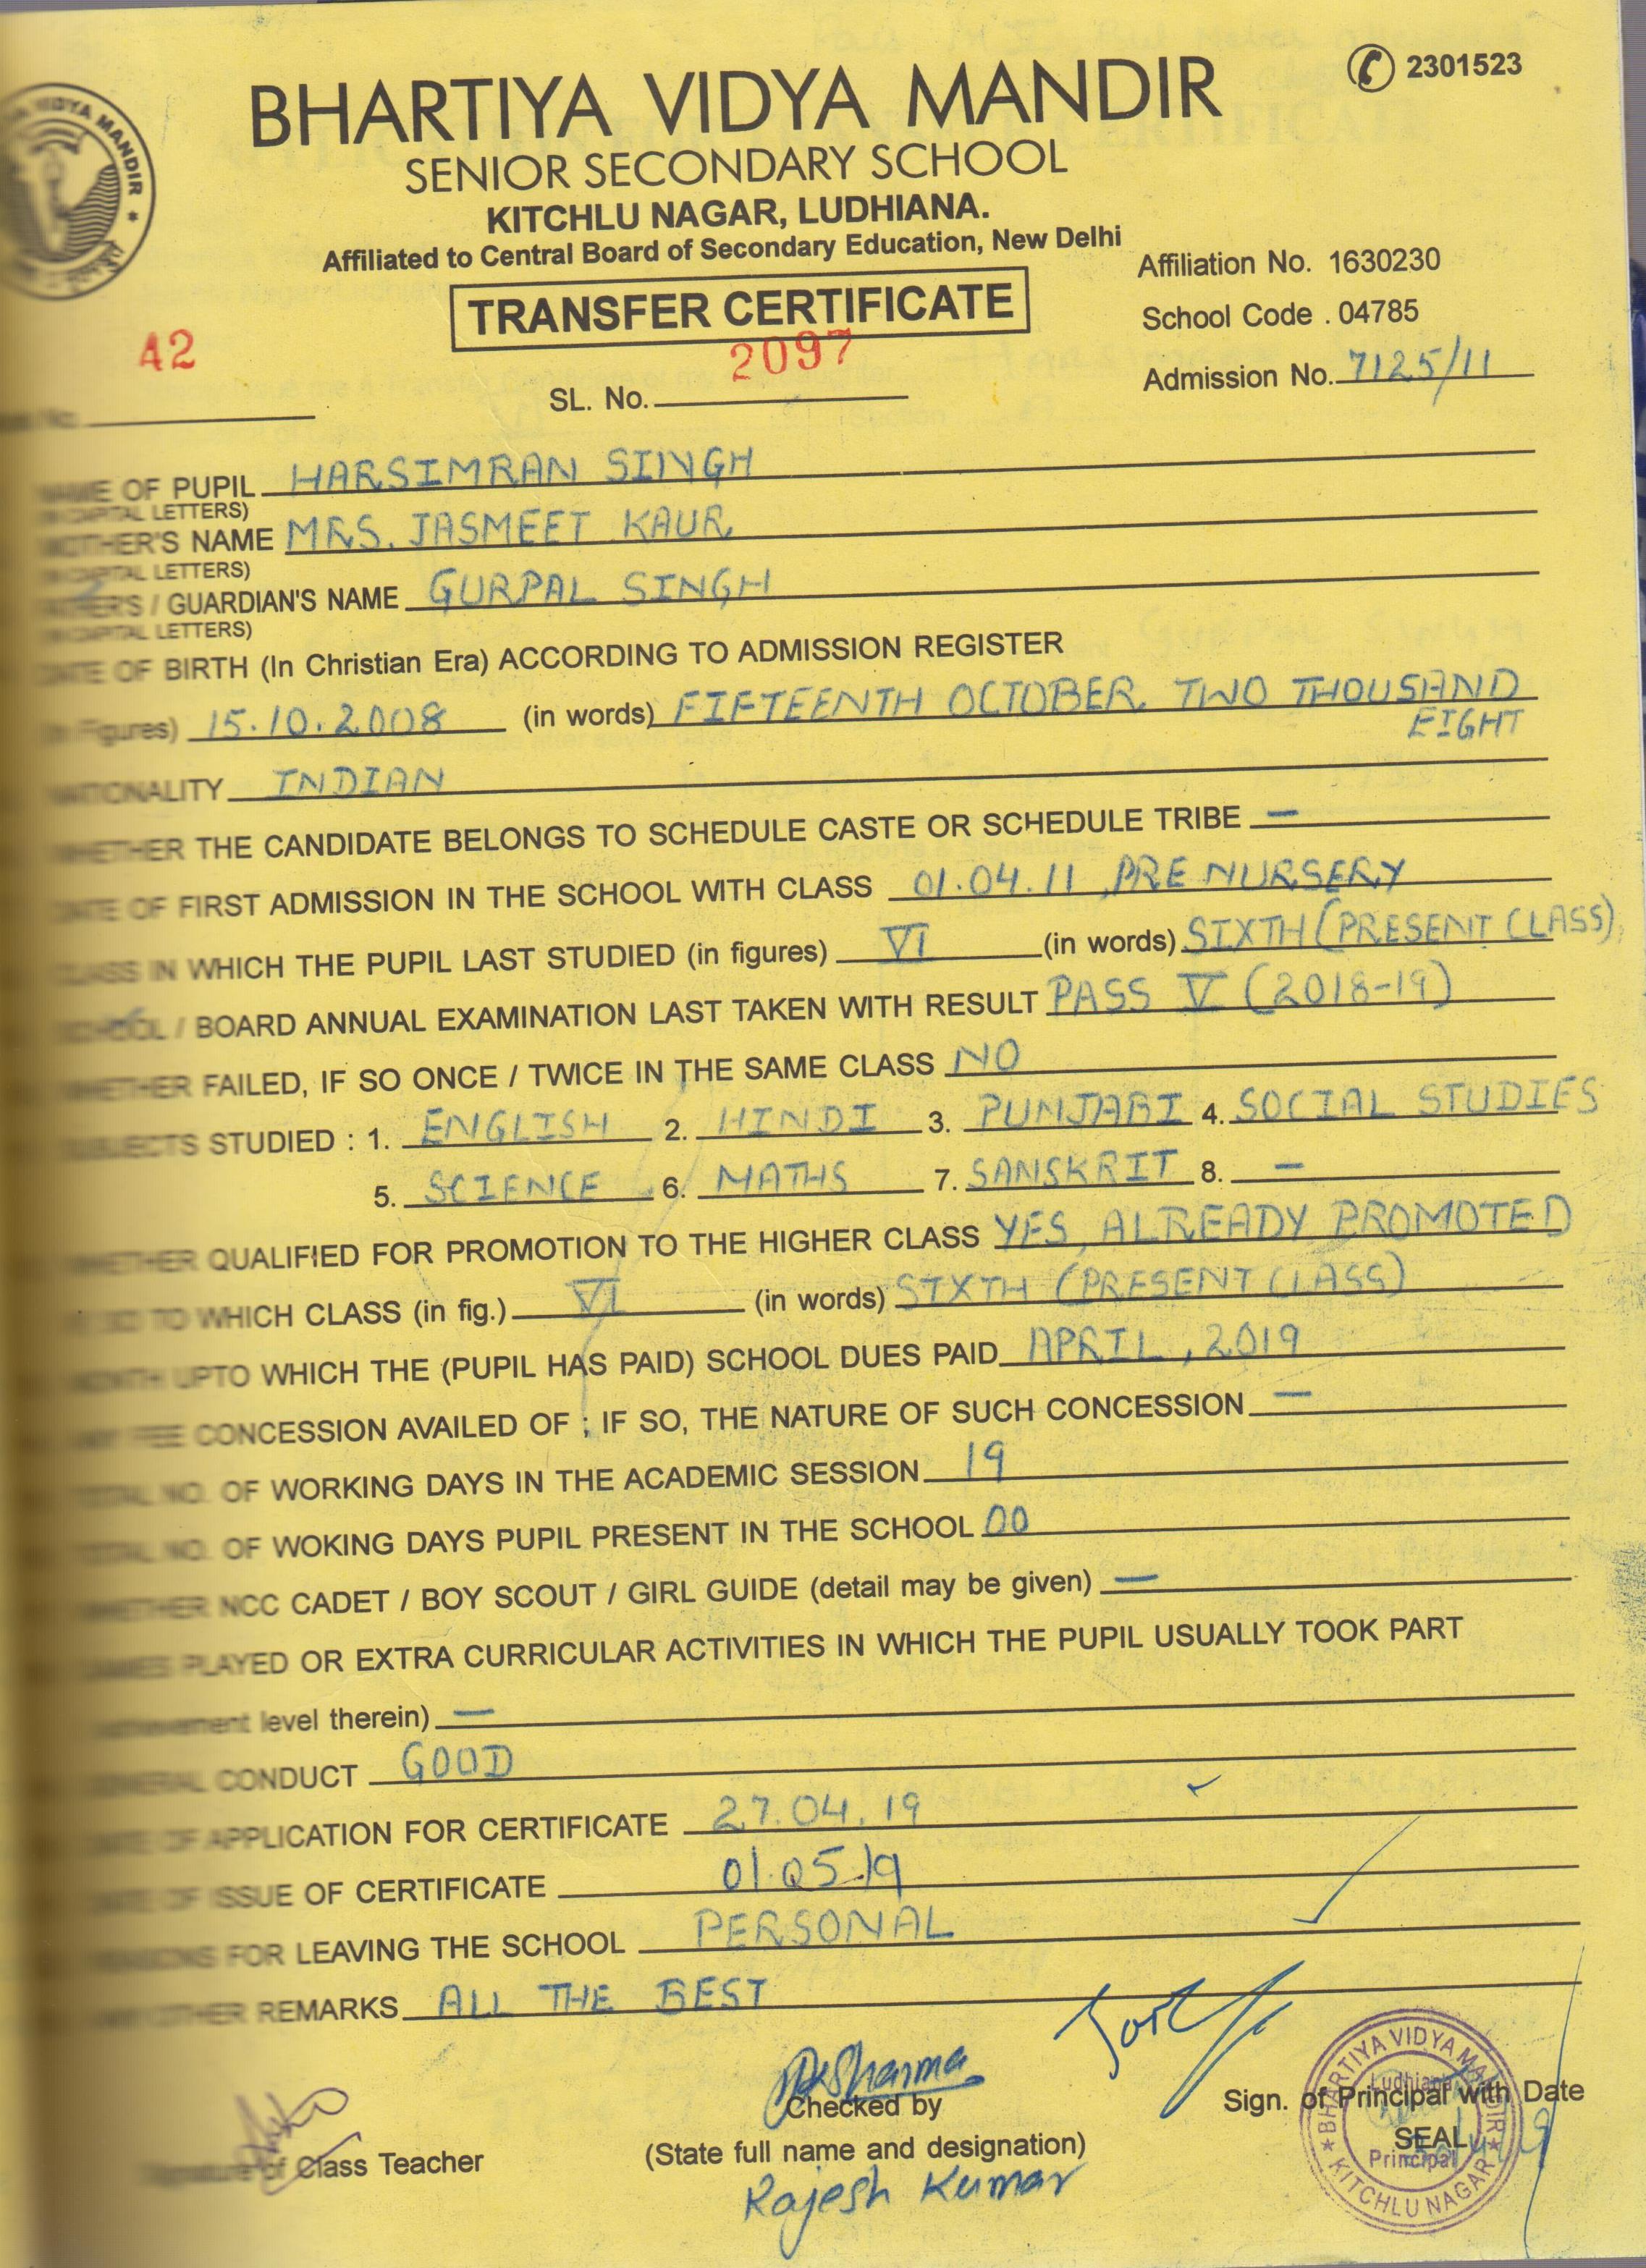 BHARTIYA VIDYA MANDIR
2301523
SENIOR SECONDARY SCHOOL
KITCHLU NAGAR, LUDHIANA.
Affiliated to Central Board of Secondary Education, New Delhi
VIDYA MANDIR *
Affiliation No. 1630230
TRANSFER CERTIFICATE
School Code . 04785
42
SL. No. 2097
Admission No. 7125/11
NAME OF PUPIL HARSIMRAN SINGH
(IN CAPITAL LETTERS)
MOTHER'S NAME MRS. JASMEET KAUR
(IN CAPITAL LETTERS)
FATHER'S / GUARDIAN'S NAME GURPAL SINGH
(IN CAPITAL LETTERS)
DATE OF BIRTH (In Christian Era) ACCORDING TO ADMISSION REGISTER
(In Figures) 15.10.2008 (in words) FIFTEENTH OCTOBER TWO THOUSAND
EIGHT
NATIONALITY INDIAN
WHETHER THE CANDIDATE BELONGS TO SCHEDULE CASTE OR SCHEDULE TRIBE —
DATE OF FIRST ADMISSION IN THE SCHOOL WITH CLASS 01.04.11, PRE NURSERY
CLASS IN WHICH THE PUPIL LAST STUDIED (in figures) VI (in words) SIXTH (PRESENT CLASS)
SCHOOL / BOARD ANNUAL EXAMINATION LAST TAKEN WITH RESULT PASS V (2018-19)
WHETHER FAILED, IF SO ONCE / TWICE IN THE SAME CLASS NO
SUBJECTS STUDIED : 1. ENGLISH 2. HINDI 3. PUNJABI 4. SOCIAL STUDIES
5. SCIENCE 6. MATHS 7. SANSKRIT 8. —
WHETHER QUALIFIED FOR PROMOTION TO THE HIGHER CLASS YES, ALREADY PROMOTED
TO WHICH CLASS (in fig.) VI (in words) SIXTH (PRESENT CLASS)
MONTH UPTO WHICH THE (PUPIL HAS PAID) SCHOOL DUES PAID APRIL, 2019
ANY FEE CONCESSION AVAILED OF ; IF SO, THE NATURE OF SUCH CONCESSION —
TOTAL NO. OF WORKING DAYS IN THE ACADEMIC SESSION 19
TOTAL NO. OF WOKING DAYS PUPIL PRESENT IN THE SCHOOL 00
WHETHER NCC CADET / BOY SCOUT / GIRL GUIDE (detail may be given) —
GAMES PLAYED OR EXTRA CURRICULAR ACTIVITIES IN WHICH THE PUPIL USUALLY TOOK PART
achievement level therein) —
GENERAL CONDUCT GOOD
DATE OF APPLICATION FOR CERTIFICATE 27.04.19
DATE OF ISSUE OF CERTIFICATE 01.05.19
REASONS FOR LEAVING THE SCHOOL PERSONAL
ANY OTHER REMARKS ALL THE BEST
Checked by
Sign. of Principal with Date
SEAL
Signature of Class Teacher
(State full name and designation)
Rajesh Kumar
BHARTIYA VIDYA MANDIR * KITCHLU NAGAR *
Ludhiana
Principal